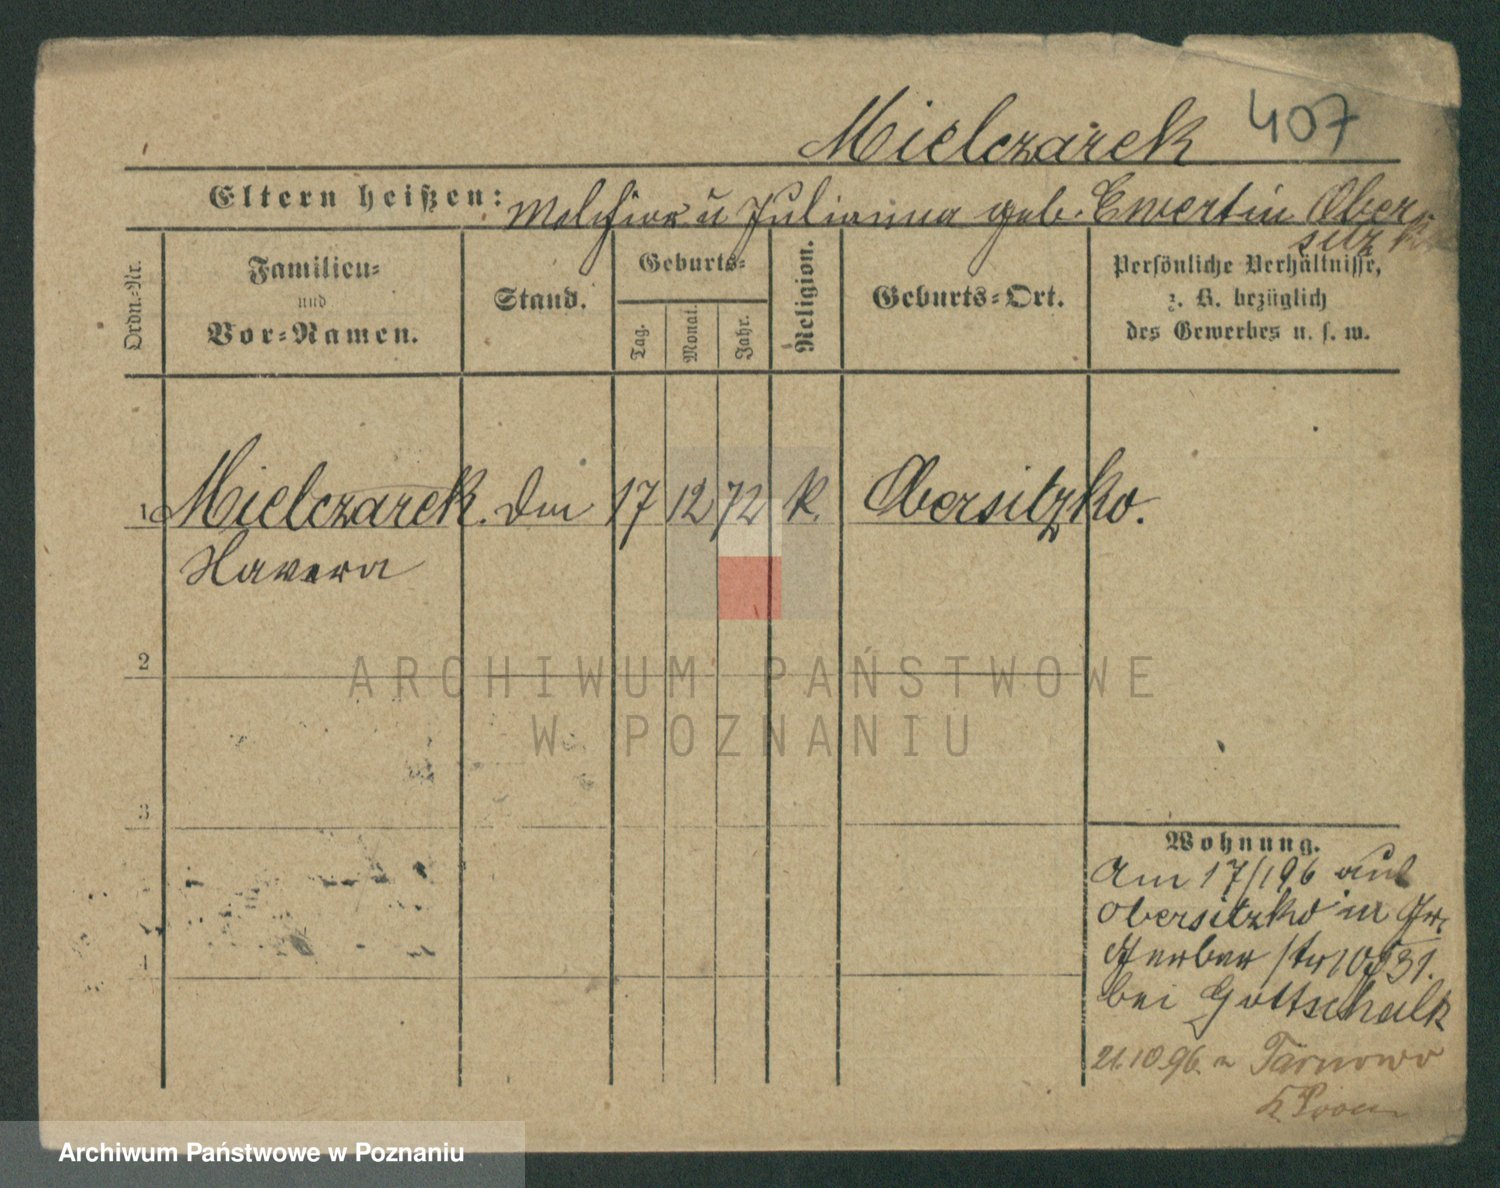 Mielczarek 407
Eltern heißen: Melchior u Julianna geb. Ewertin Ober-
sitzko
Ordn.-Nr.
Familien-
und
Vor-Namen.
Stand.
Geburts-
Tag.
Monat.
Jahr.
Religion.
Geburts-Ort.
Persönliche Verhältnisse,
z. B. bezüglich
des Gewerbes u. s. w.
1 Mielczarek. 17 12 72 K. Obersitzko.
Xavera
2
3
4
Wohnung.
Am 17/1 96 aus
Obersitzko in Gr.
Gerber str
bei Gottschalk
21.10.96. n Tarnowo
ARCHIWUM PAŃSTWOWE
W POZNANIU
Archiwum Państwowe w Poznaniu